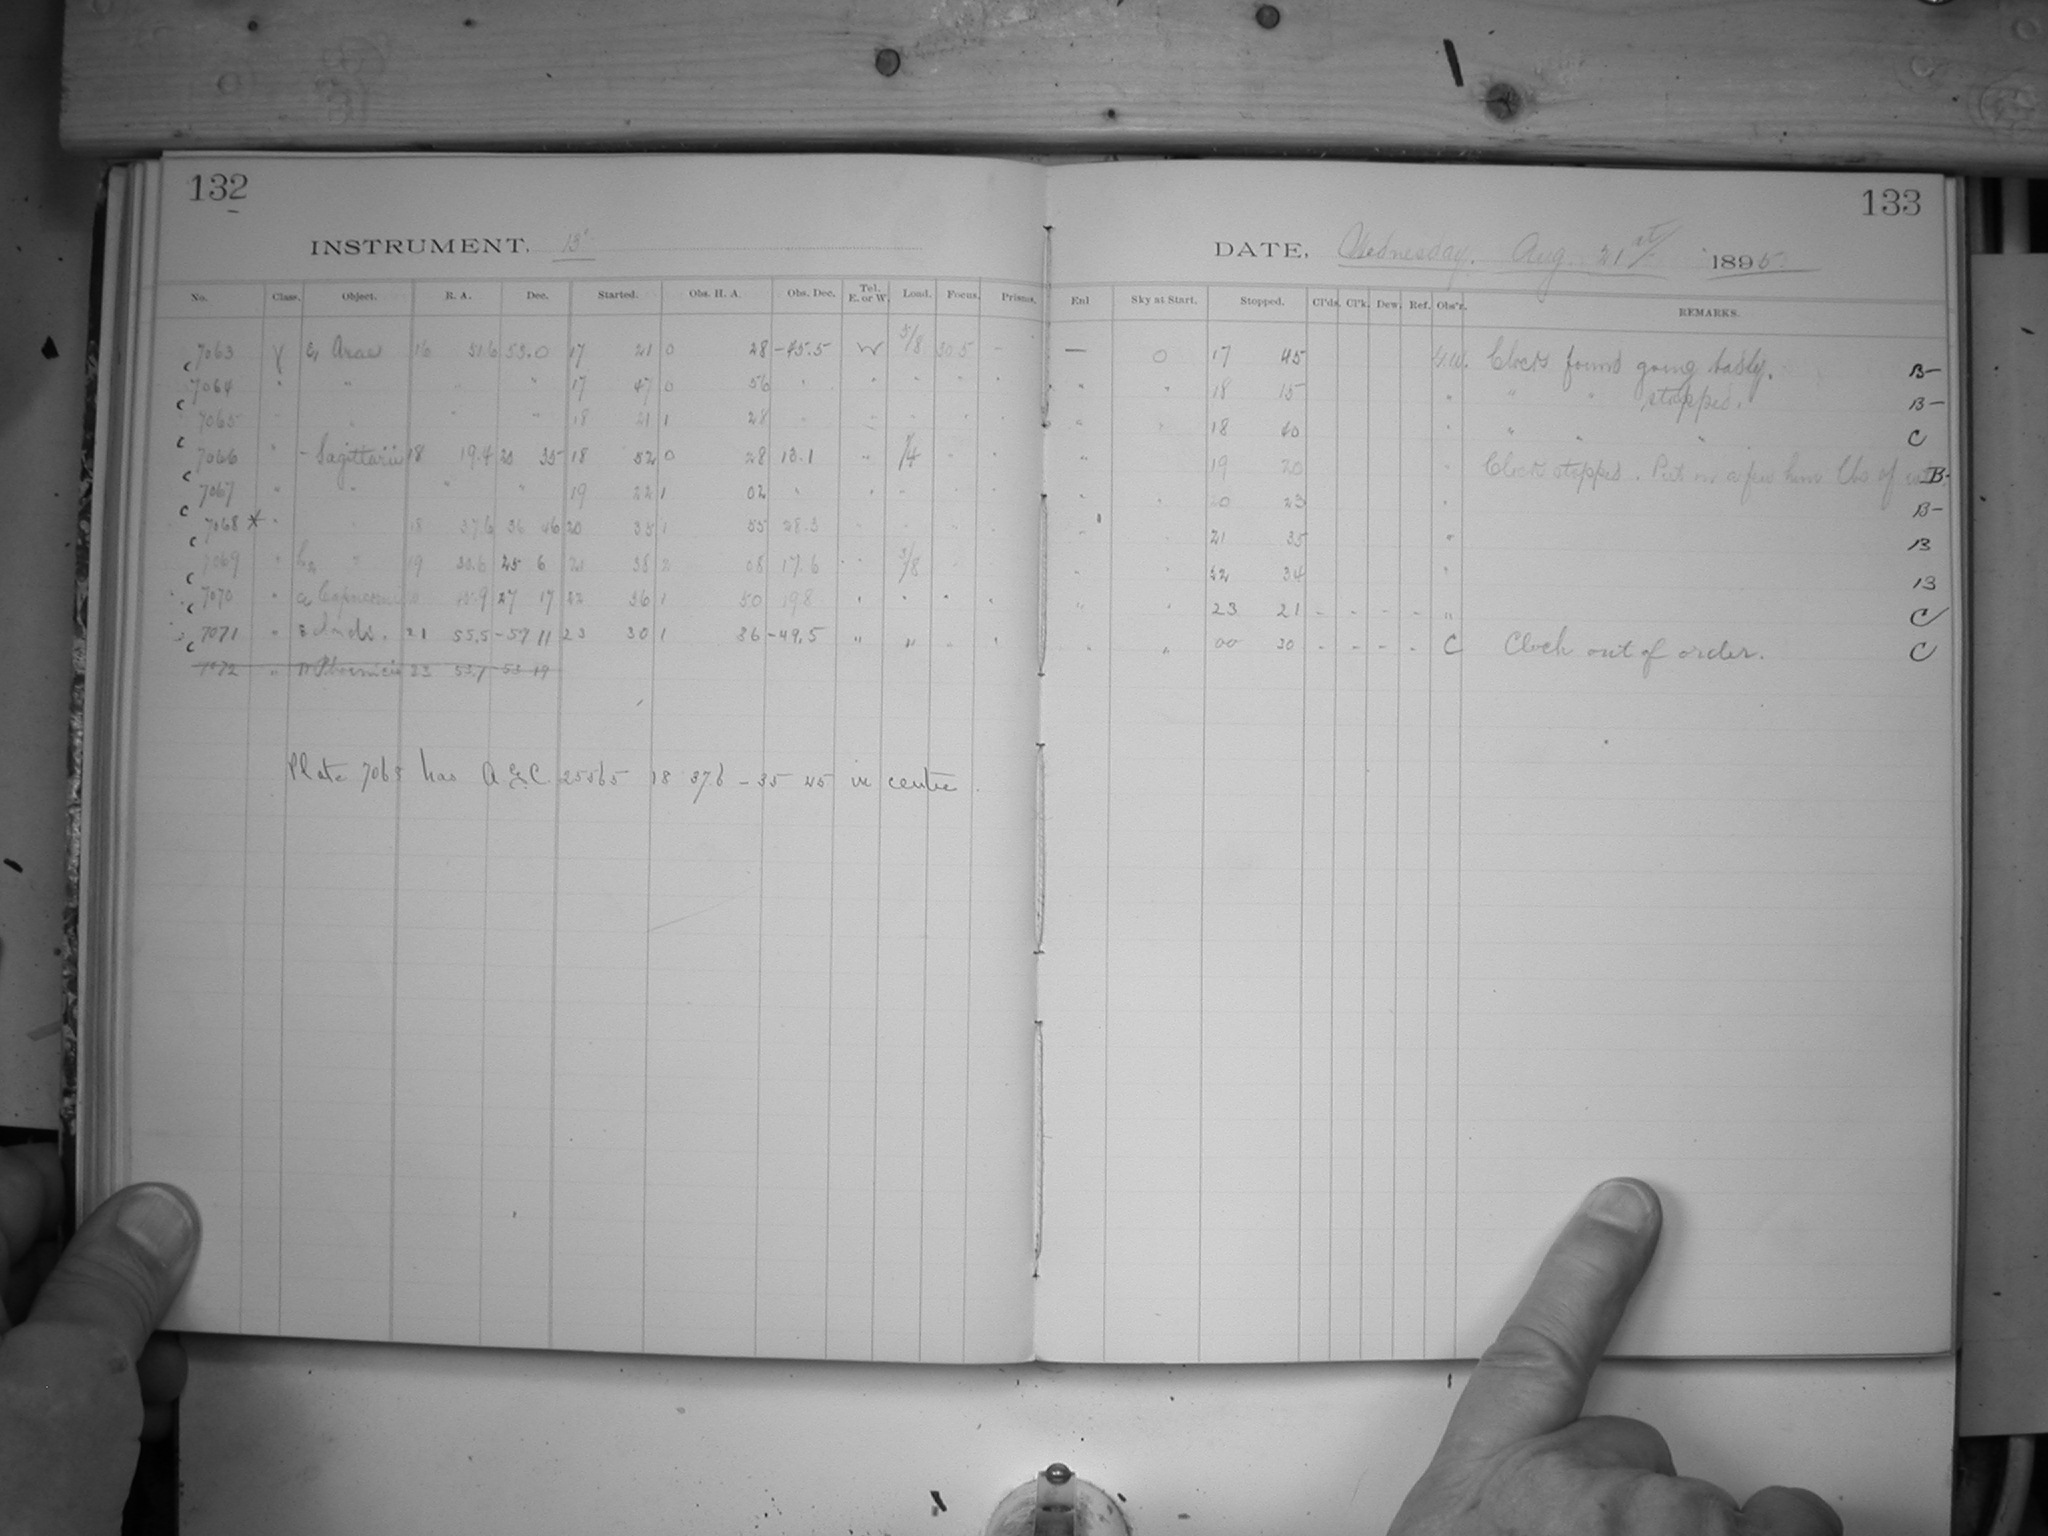 132
INSTRUMENT. 13"
No. Class. Object. R. A. Dec. Started. Obs. H. A. Obs. Dec. Tel. E. or W. Load. Focus. Prisms.
7063 γ Arae 16 51.6 53.0 17 21 0 28 -45.5 W 5/8 30.5 -
7064 " " " " 17 47 0 56 " " " " "
7065 " " " " 18 21 1 28 " " " " "
7066 " - Sagittarii 18 19.4 25 35 18 52 0 28 13.1 " 1/4 " "
7067 " " " " 19 22 1 02 " " " " "
7068 * " " 18 37.6 36 46 20 35 1 55 28.3 " " " "
7069 " h2 " 19 30.6 25 6 21 38 2 08 17.6 " 5/8 " "
7070 " Capricorni 27 17 22 36 1 50 19.8 " " " "
7071 " ε Indi. 21 55.5 -57 11 23 30 1 36 -49.5 " " " "
7072 " π Phoenicis 23 53.1 53 19
Plate 7068 has A.G.C. 25565 18 37.6 - 35 45 in centre.
133
DATE, Wednesday. Aug. 21st 1895.
Enl Sky at Start. Stopped. Cl'ds. Cl'k. Dew. Ref. Obs'r. REMARKS.
— 0 17 45 Clock found going badly. B-
" " 18 15 " " " stopped. B-
" " 18 40 " " " " C
" 19 20 " Clock stopped. Put on a few lbs of B-
" " 20 23 " B-
" " 21 35 " B
" " 22 34 " B
" " 23 21 - - - - " C
" " 00 30 - - - - C Clock out of order. C